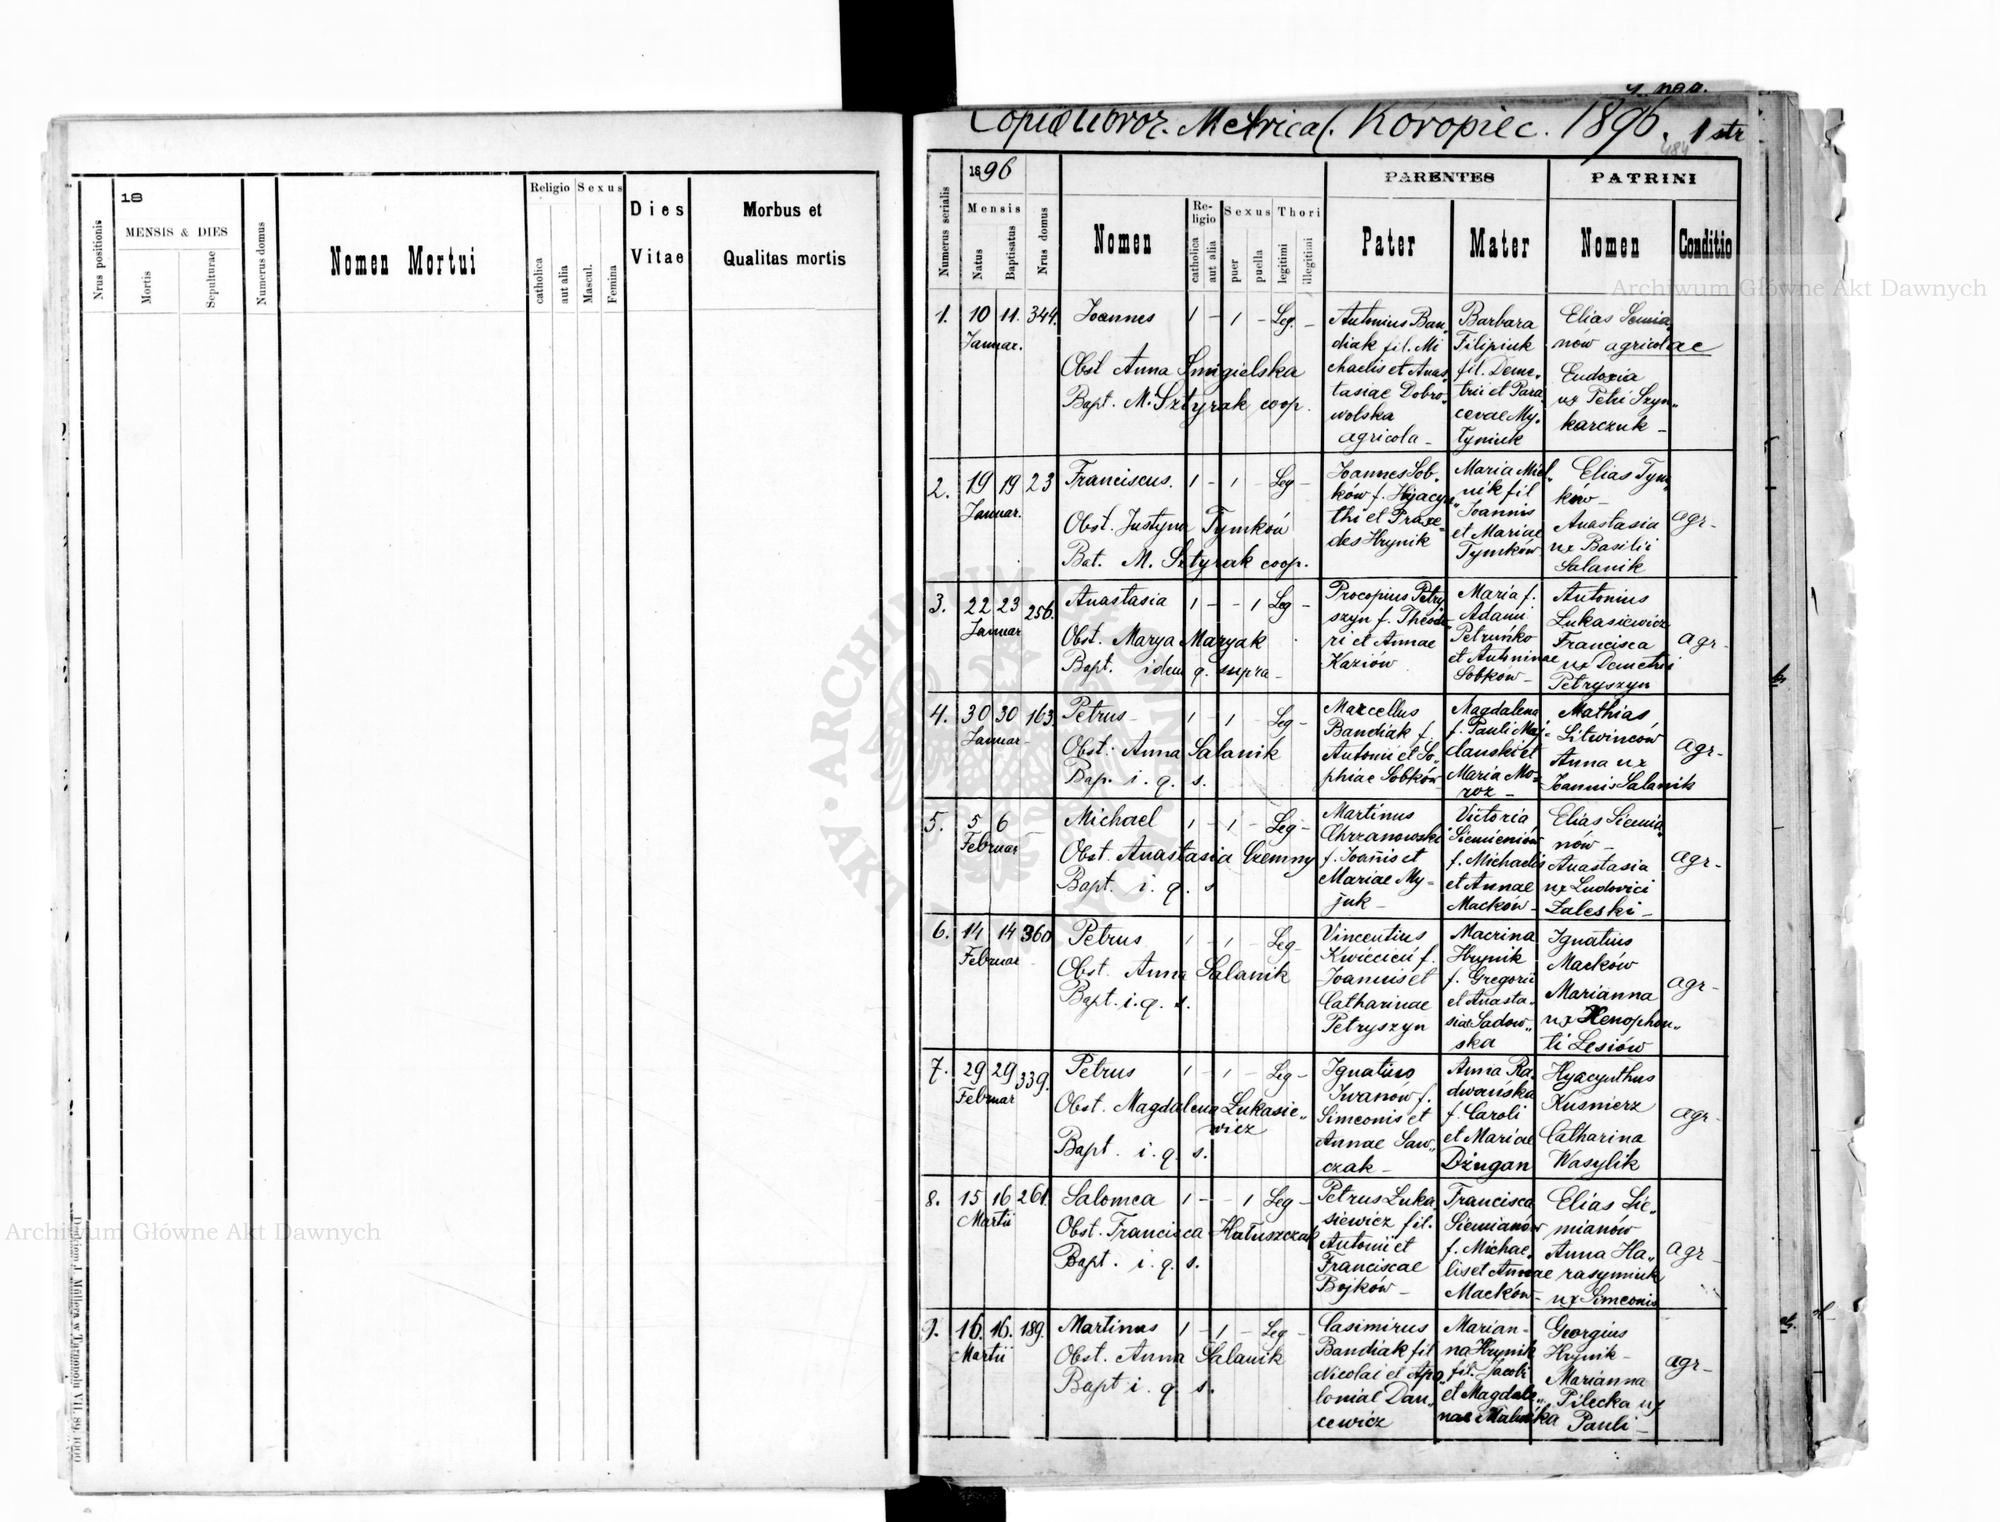 18
MENSIS & DIES
Nrus positionis
Mortis
Sepulturae
Numerus domus
Nomen Mortui
Religio
catholica
aut alia
Sexus
Mascul.
Femina
Dies
Vitae
Morbus et
Qualitas mortis
Archiwum Główne Akt Dawnych
Metrical. Koropiec. 1896. 1 str
484
Numerus serialis
1896
Mensis
Natus
Baptisatus
Nrus domus
Nomen
Religio
catholica
aut alia
Sexus
puer
puella
Thori
legitimi
illegitimi
PARENTES
Pater
Mater
PATRINI
Nomen
Conditio
Archiwum Główne Akt Dawnych
1. 10 11. 344. Joannes 1 - 1 - Leg. -
Januar.
Obst Anna Smigielska
Bapt. M. Sztyrak coop.
Antonius Ban„
diak fil. Mi
chaelis et Anas„
tasiae Dobro„
wolska
agricola -
Barbara
Filipiuk
fil. Deme„
trii et Para„
cevae My„
tyniuk
Elias Siemia„
now agricolae
Eudoxia
ux Petri Szyn„
karczuk -
2. 19 19 23 Franciscus. 1 - 1 - Leg -
Januar.
Obst. Justyna Tymków
Bat. M. Sztyrak coop.
Joannes Sob„
ków f. Hyacyn„
thi et Praxe„
des Hrynik
Maria Miel„
nik fil
Joannis
et Mariae
Tymków
Elias Tym„
ków -
Anastasia
ux Basilii
Salanik
agr -
3. 22 23 256. Anastasia 1 - - 1 Leg -
Januar
Obst. Marya Maryak
Bapt. idem q. supra -
Procopius Petry„
szyn f. Theodo„
ri et Annae
Kaziów
Maria f.
Adami
Petruńko
et Antoninae
Sobków -
Antonius
Lukasiewicz
Francisca
ux Demetrii
Petryszyn
agr -
4. 30 30 163. Petrus - 1 - 1 - Leg -
Januar -
Obst. Anna Salanik
Bap. i. q. s.
Marcellus
Bandiak f.
Antonii et So„
phiae Sobków
Magdalena
f. Pauli Maj„
danski et
Maria Mo„
roz -
Mathias
Litwinców
Anna ux
Joannis Salanik
agr -
5. 5 6 - Michael 1 - 1 - Leg -
Februar
Obst. Anastasia Czemny
Bapt. i. q. s
Martinus
Chrzanowski
f. Joannis et
Mariae My„
juk -
Victoria
Siemieniów
f. Michaelis
et Annae
Macków -
Elias Siemia„
nów -
Anastasia
ux Ludovici
Zaleski -
agr -
6. 14 14 360 Petrus 1 - 1 - Leg -
Februar -
Obst. Anna Salanik
Bapt. i. q. s.
Vincentius
Kwiecień f.
Joannis et
Catharinae
Petryszyn
Macrina
Hrynik
f. Gregorii
et Anasta„
siae Sadow„
ska
Ignatius
Macków
Marianna
ux Xenophon„
ti Lesiów
agr -
7. 29 29 339. Petrus 1 - 1 - Leg -
Februar
Obst. Magdalena Lukasie„
wicz
Bapt. i. q. s.
Ignatius
Iwanów f.
Simeonis et
Annae Saw„
czak -
Anna Ra„
dwańska
f. Caroli
et Mariae
Dżugan
Hyacynthus
Kusnierz
Catharina
Wasylik
agr -
8. 15 16 261. Salomea 1 - - 1 Leg -
Martii
Obst. Francisca Haluszczak
Bapt. i. q. s.
Petrus Luka„
siewicz fil.
Antonii et
Franciscae
Bojków -
Francisca
Siemianów
f. Michae„
lis et Annae
Macków -
Elias Sie„
mianów
Anna Ha„
rasymiuk
ux Simeonis
agr -
9. 16. 16. 189. Martinus 1 - 1 - Leg -
Martii
Obst. Anna Salanik
Bapt i. q. s.
Casimirus
Bandiak fil
Nicolai et Apo„
loniae Dan„
cewicz
Marian -
na Hrynik
fil. Jacobi
et Magdale„
nae
Georgius
Hrynik -
Marianna
Pilecka ux
Pauli -
agr -
Drukiem J. Müllera w Tarnopolu VII. 89. 1000
ARCHIWUM